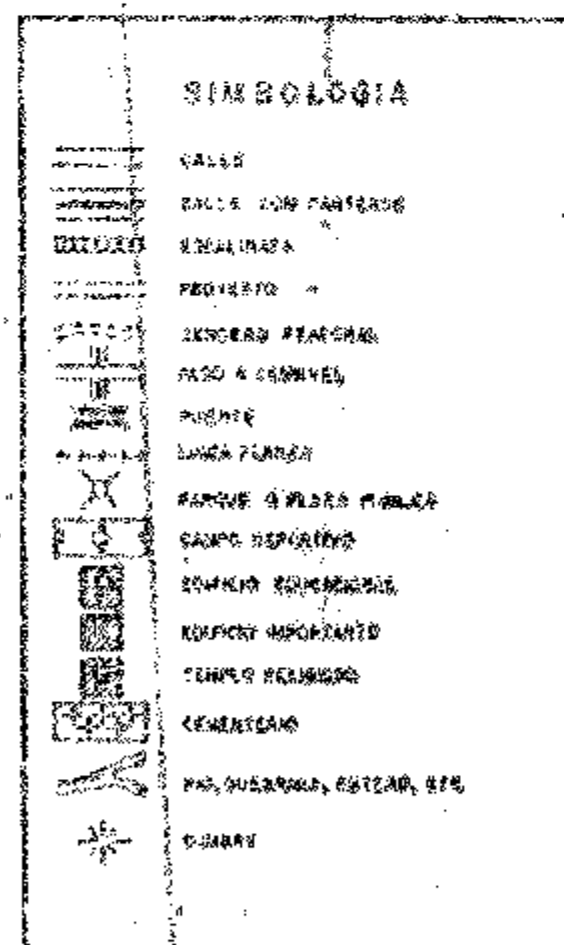 SIMBOLOGIA
CALLE
CALLE CON PARTERRE
ESCALINATA
PROYECTO
SENDERO PEATONAL
PASO A DESNIVEL
PUENTE
LINEA FERREA
PARQUE O PLAZA PUBLICA
CAMPO DEPORTIVO
EDIFICIO EDUCACIONAL
EDIFICIO IMPORTANTE
TEMPLO RELIGIOSO
CEMENTERIO
RIO, QUEBRADA, ESTERO, ETC.